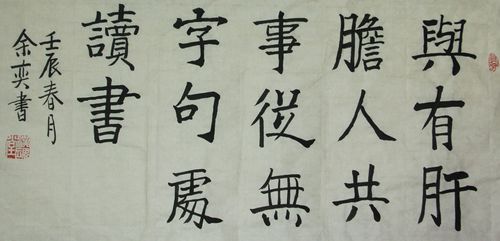 與有肝
膽人共
事從無
字句處
讀書
壬辰春月
余奕書